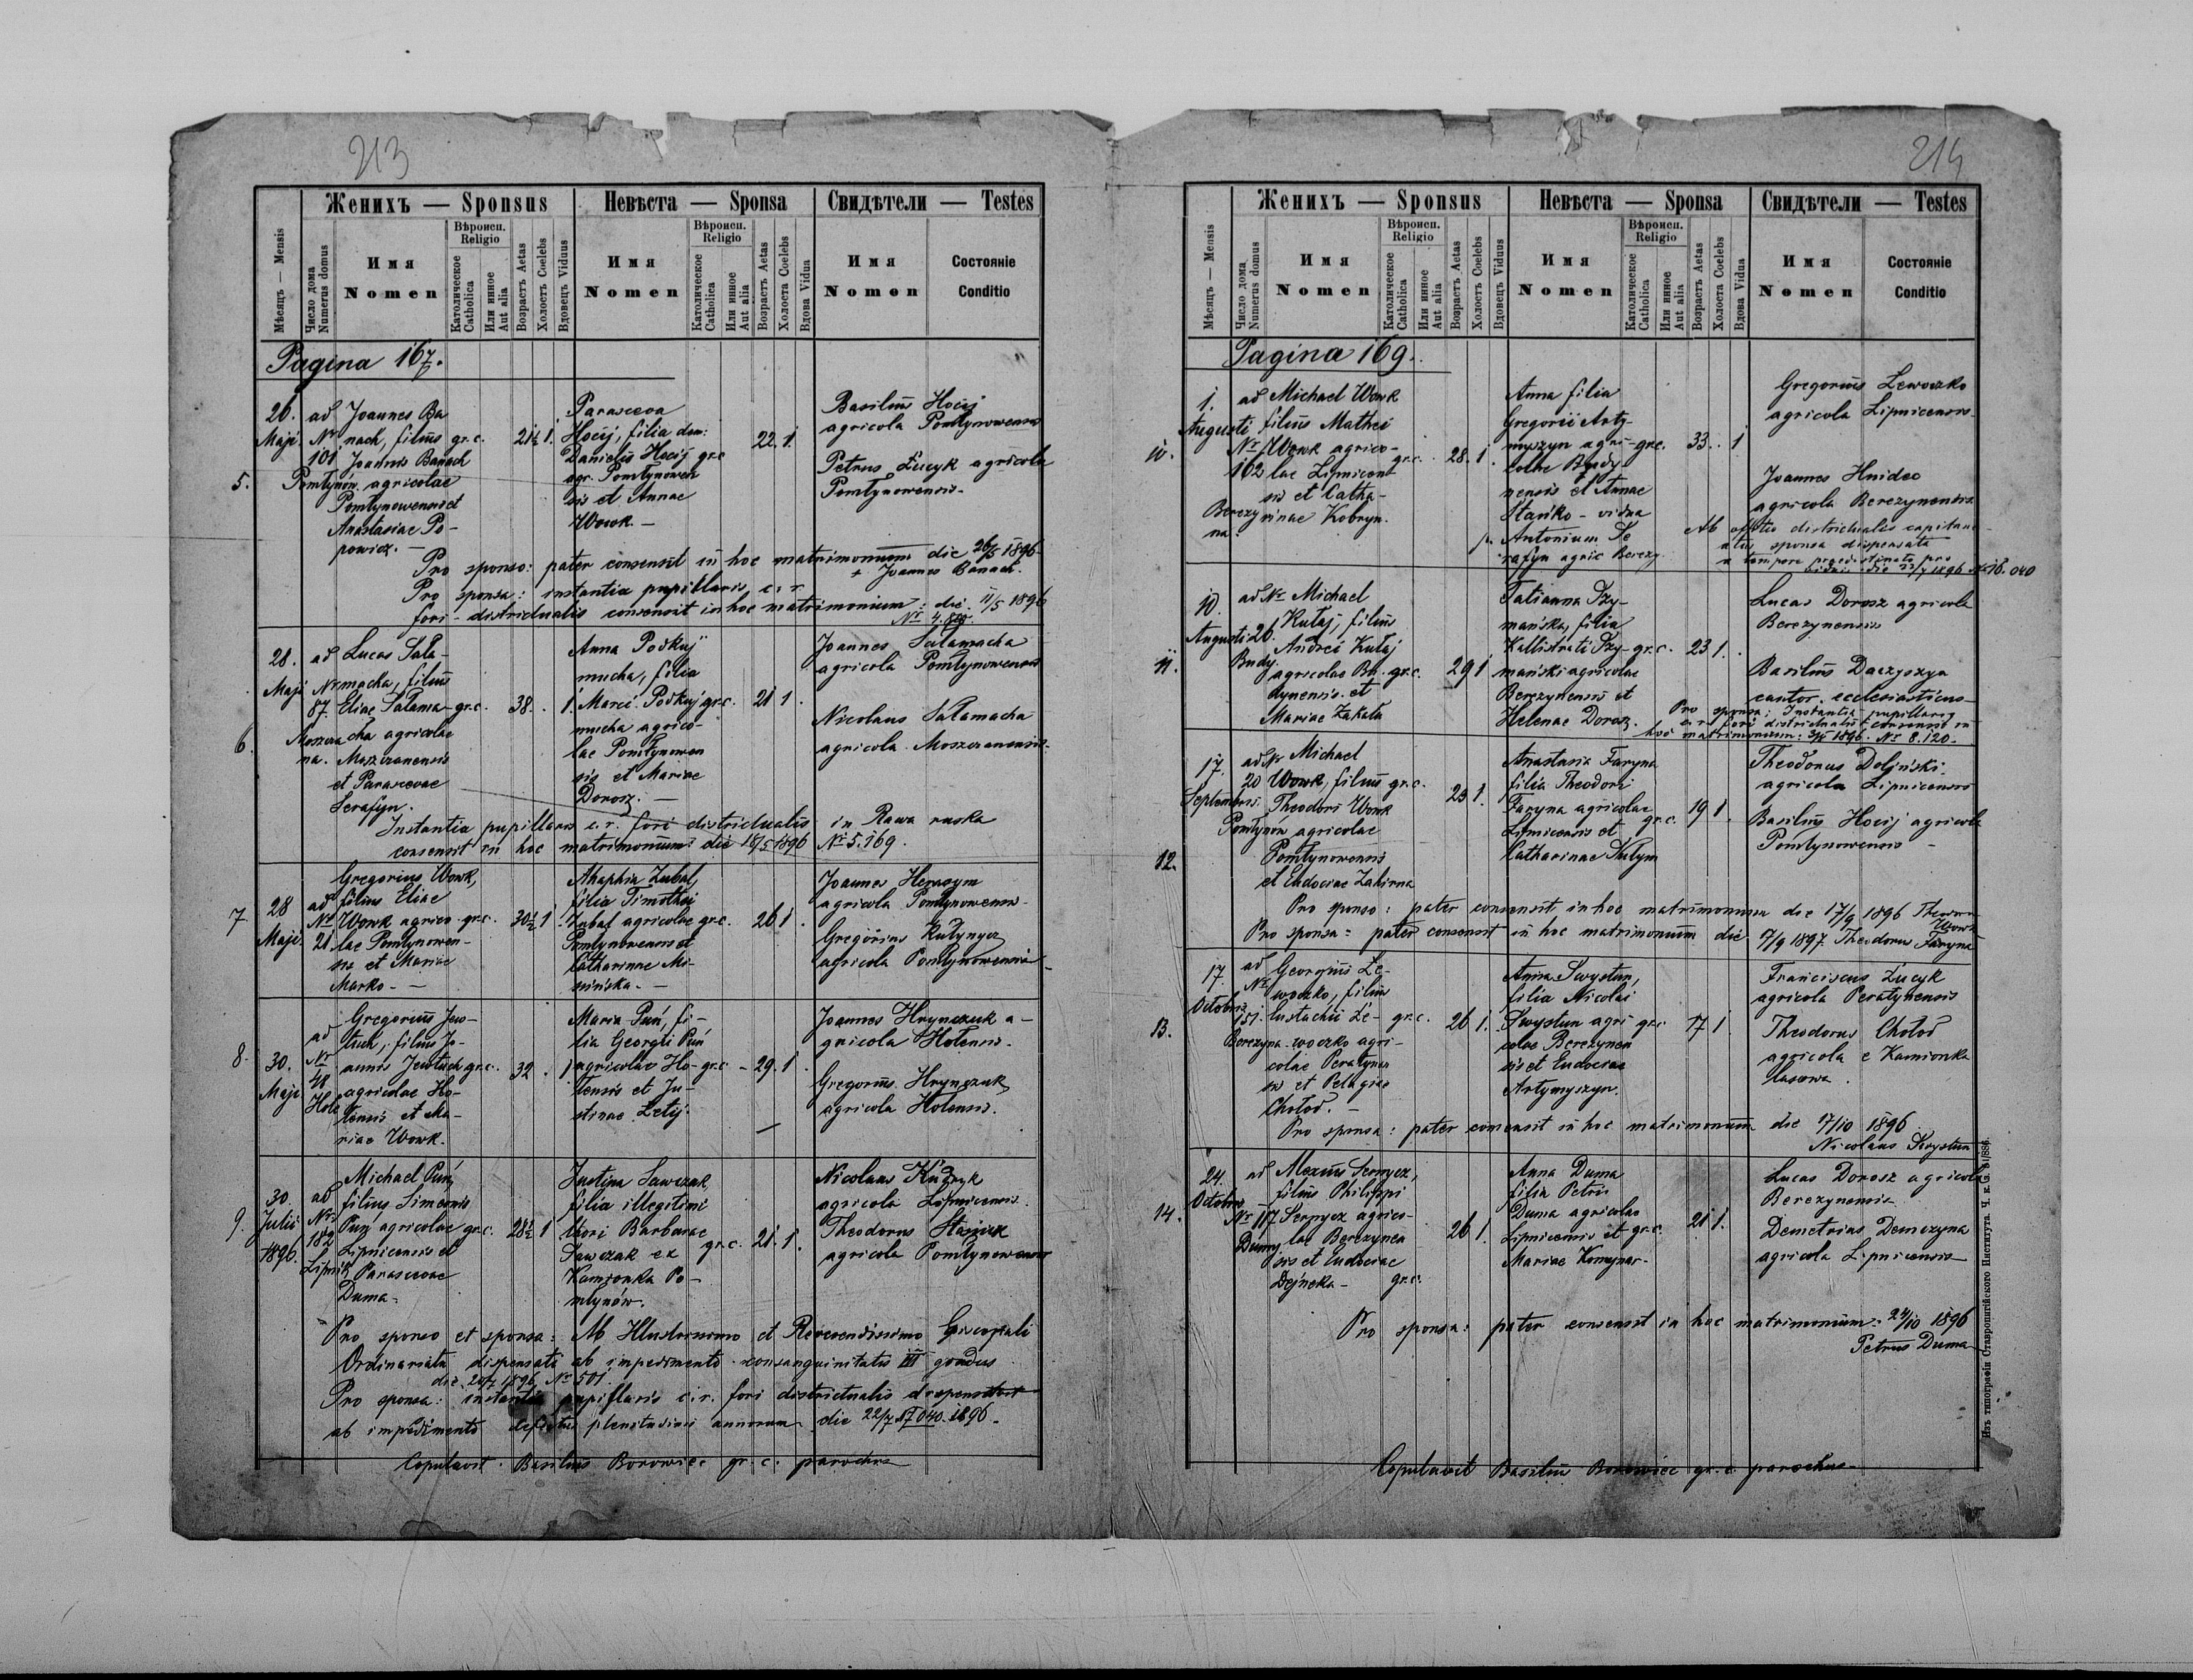 213
Женихъ — Sponsus
Невѣста — Sponsa
Свидѣтели — Testes
Мѣсяцъ — Mensis
Число дома
Numerus domus
Имя
Nomen
Вѣроисп.
Religio
Католическое
Catholica
Или инное
Aut alia
Возрастъ Aetas
Холостъ Coelebs
Вдовецъ Viduus
Имя
Nomen
Вѣроисп.
Religio
Католическое
Catholica
Или инное
Aut alia
Возрастъ Aetas
Холоста Coelebs
Вдова Vidua
Имя
Nomen
Состояніе
Conditio
Pagina 167.
5.
26.
Maji
ad
Nr
101
Pomłynów
Joannes Ba
nach, filius gr.c. 21½ 1.
Joannis Banach
agricolae
Pomłynowensis et
Anastasiae Po-
powicz. —
Parasceva
Hocij, filia dem:
Danielis Hocij gr.c 22. 1.
agr. Pomłynowen
sis et Annae
Wowk. —
Basilius Hocij
agricola Pomłynowensis
Petrus Łucyk agricola
Pomłynowensis.
Pro sponso: pater consensit in hoc matrimonium die 26/5 1896
+ Joannes Banach.
Pro sponsa: instantia pupillaris c. r.
fori districtualis consensit in hoc matrimonium: die 11/5 1896
6.
28.
Maji
ad
Nr
87.
Moszcza
na.
Lucas Sała-
macha, filius
Eliae Sałama- gr.c. 38. . 1.
cha agricolae
Moszczanensis
et Parascevae
Serafyn.
Anna Podkuj
mucha, filia
Marci Podkuj gr.c. 21 1.
mucha agrico-
lae Pomłynowen
sis et Mariae
Dorosz. —
Joannes Sałamacha
agricola Pomłynowensis
Nicolaus Sałamacha
agricola Moszczanensis.
Instantia pupillaris c. r. fori districtualis in Rawa ruska
consensit in hoc matrimonium die 18/5 1896 Nr 5.169.
7.
28
Maji
ad
Nr
21
Gregorius Wowk,
filius Eliae
Wowk agrico- gr.c. 30½ 1
lae Pomłynowen-
sis et Mariae
Marko. —
Ahaphia Zubal,
filia Timothei
Zubal agricolae gr.c. 26 1.
Pomłynowensis et
Catharinae Mi-
sińska. —
Joannes Herasym
agricola Pomłynowensis
Gregorius Kułynycz
agricola Pomłynowensis
8.
30.
Maji
ad
Nr
48
Hole
Gregorius Jew-
tuch, filius Jo-
annis Jewtuch gr.c. 32 . 1
agricolae Ho-
lensis et Ma-
riae Wowk.
Maria Puń, fi-
lia Georgii Puń
agricolae Ho- gr.c. - 29. 1.
lensis et Ju-
stinae Letij.
Joannes Hrynczuk a-
gricola Holensis.
Gregorius Hrynczuk
agricola Holensis.
9.
30.
Julii
1896.
ad
Nr
182
Lipnik
Michael Puń,
filius Simeonis
Puń agricolae gr.c. 28½ 1
Lipnicensis et
Parascevae
Duma.
Justina Sawczak,
filia illegitimi
thori Barbarae
Sawczak ex gr.c. 21. 1.
Kamionka Po-
młynów.
Nicolaus Kudryk
agricola Lipnicensis.
Theodorus Stajuk
agricola Pomłynowensis
Pro sponso et sponsa: Ab Illustrissimo et Reverendissimo Episcopali
Ordinariatu dispensati ab impedimento consanguinitatis III gradus
die 20/7 1896 Nr 501
Pro sponsa: instantia pupillaris c. r. fori districtualis dispensavit
ab impedimento defectus plenitudinis annorum die 22/7 1896.
Copulavit Basilius Borowiec gr. c. parochus
214
Женихъ — Sponsus
Невѣста — Sponsa
Свидѣтели — Testes
Мѣсяцъ — Mensis
Число дома
Numerus domus
Имя
Nomen
Вѣроисп.
Religio
Католическое
Catholica
Или инное
Aut alia
Возрастъ Aetas
Холостъ Coelebs
Вдовецъ Viduus
Имя
Nomen
Вѣроисп.
Religio
Католическое
Catholica
Или инное
Aut alia
Возрастъ Aetas
Холоста Coelebs
Вдова Vidua
Имя
Nomen
Состояніе
Conditio
Pagina 169.
10.
1.
Augusti
ad
Nr
162
Berezy
na.
Michael Wowk
filius Mathei
Wowk agrico-
lae Lipnicen gr.c. 28. 1.
sis et Catha-
rinae Kobryn.
Anna filia
Gregorii Arty-
myszyn agri- gr.c. 33. . 1
colae Budy
nensis et Annae
Stańko - vidua
p. Antonium Se
rafyn agric Berezy.
Gregorius Lewoczko
agricola Lipnicensis
Joannes Hnidec
agricola Berezynensis
Ab officio districtualis capitane
atus sponsa dispensata
a tempore praedestinato pro
viduis die 22/7 1896 Nr 18.040
11.
10.
Augusti
ad Nr
26.
Budy
Michael
Kułaj, filius
Andrei Kułaj
agricolae Bu- gr.c. 29 1
dynensis et
Mariae Zakała
Tatianna Szy-
mańska, filia
Kallistrati Szy- gr.c. 23 1.
mański agricolae
Berezynensis et
Helenae Dorosz.
Lucas Dorosz agricola
Berezynensis
Basilius Daczyszyn
cantor ecclesiasticus
Pro sponsa: Instantia pupillaris
c. r. fori districtualis consensit in
hoc matrimonium: 1896. Nr 8.120.
12.
17.
Septembris
ad Nr
20
Pomłynów
Michael
Wowk, filius gr.c. 23 1.
Theodori Wowk
agricolae
Pomłynowensis
et Eudociae Zahirna
Anastasia Faryna
filia Theodori
Faryna agricolae gr.c. 19 1.
Lipnicensis et
Catharinae Kułym
Theodorus Doliński
agricola Lipnicensis
Basilius Hocij agricola
Pomłynowensis -
Pro sponso: pater consensit in hoc matrimonium die 17/9 1896 Theodor
Wowk
Pro sponsa: pater consensit in hoc matrimonium die 17/9 1897. Theodorus Faryna
13.
17.
Octobris
ad
Nr
151.
Berezyna
Georgius Le-
woczko, filius
Eustachii Le- gr.c. 26 1.
woczko agri-
colae Peratynen
sis et Pelagiae
Chołod. —
Anna Swystun,
filia Nicolai
Swystun agri gr.c. 17 1.
colae Berezynen
sis et Eudociae
Artymyszyn.
Franciscus Łucyk
agricola Peratynensis
Theodorus Chołod
agricola e Kamionka
lasowa.
Pro sponsa: pater consensit in hoc matrimonium die 17/10 1896
Nicolaus Swystun
14.
24.
Octobris
ad
Nr 117
Alexius Sernyez,
filius Philippi
Sernyez agrico-
lae Berezynen 26 1.
sis et Eudociae
Dejneka - gr.c.
Anna Duma
filia Petri
Duma agricolae
Lipnicensis et gr.c. 21 1.
Mariae Komynar.
Lucas Dorosz agricola
Berezynensis
Demetrius Demczyna
agricola Lipnicensis
Pro sponsa: pater consensit in hoc matrimonium: 24/10 1896
Petrus Duma
Copulavit Basilius Borowiec gr. c. parochus
Изъ типографіи Ставропигійского Института. Ч. к. G. 81/886.